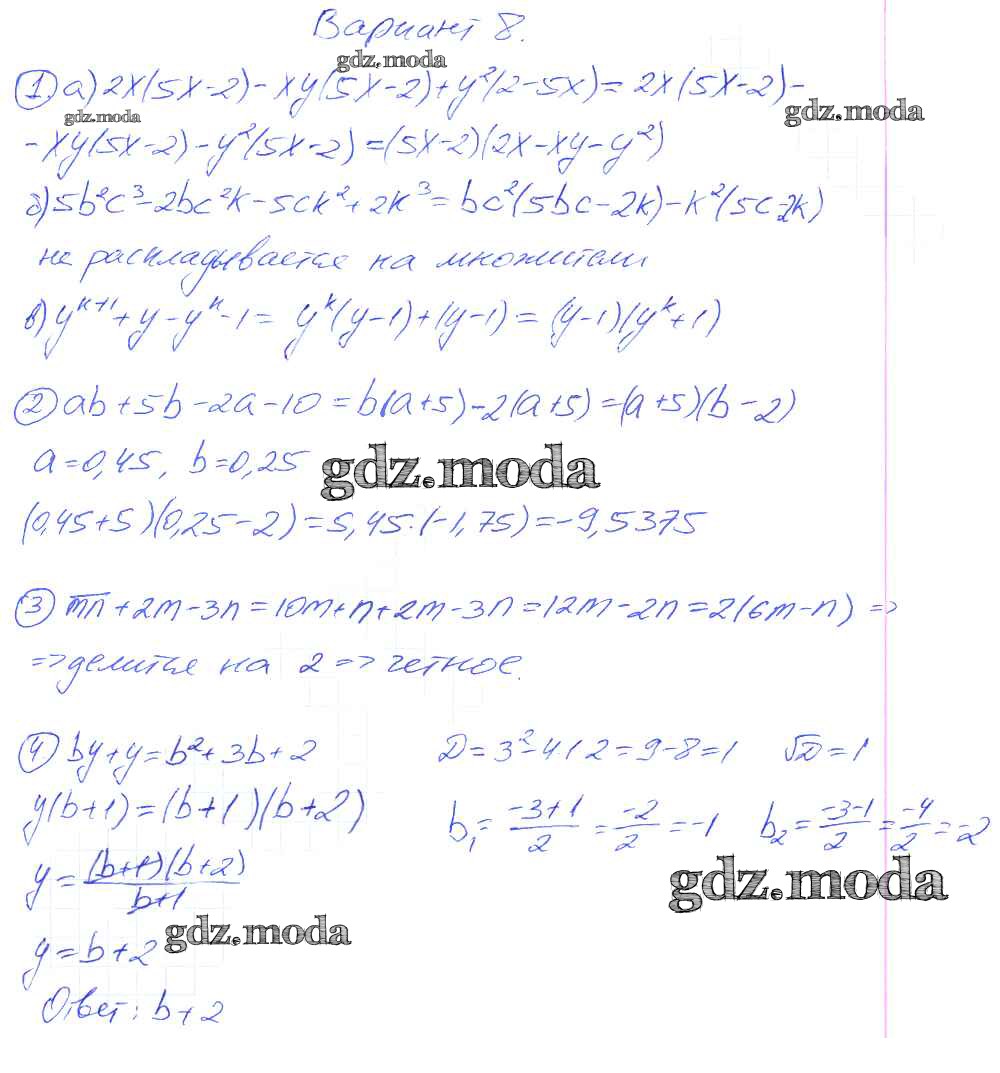 Вариант 8.
gdz.moda
① а) 2x(5x-2)-xy(5x-2)+y²(2-5x)=2x(5x-2)-
gdz.moda
gdz.moda
-xy(5x-2)-y²(5x-2)=(5x-2)(2x-xy-y²)
б) 5b²c³-2bc²k-5ck²+2k³=bc²(5bc-2k)-k²(5c-2k)
не раскладывается на множители
в) y^(k+1)+y-y^k-1=y^k(y-1)+(y-1)=(y-1)(y^k+1)
② ab+5b-2a-10=b(a+5)-2(a+5)=(a+5)(b-2)
a=0,45, b=0,25
gdz.moda
(0,45+5)(0,25-2)=5,45·(-1,75)=-9,5375
③ m̅n̅+2m-3n=10m+n+2m-3n=12m-2n=2(6m-n) =>
=> делится на 2 => четное.
④ by+y=b²+3b+2 D=3²-4·2=9-8=1 √D=1
y(b+1)=(b+1)(b+2) b₁=(-3+1)/2=-2/2=-1 b₂=(-3-1)/2=-4/2=-2
y=(b+1)(b+2)/(b+1)
gdz.moda
gdz.moda
y=b+2
Ответ: b+2